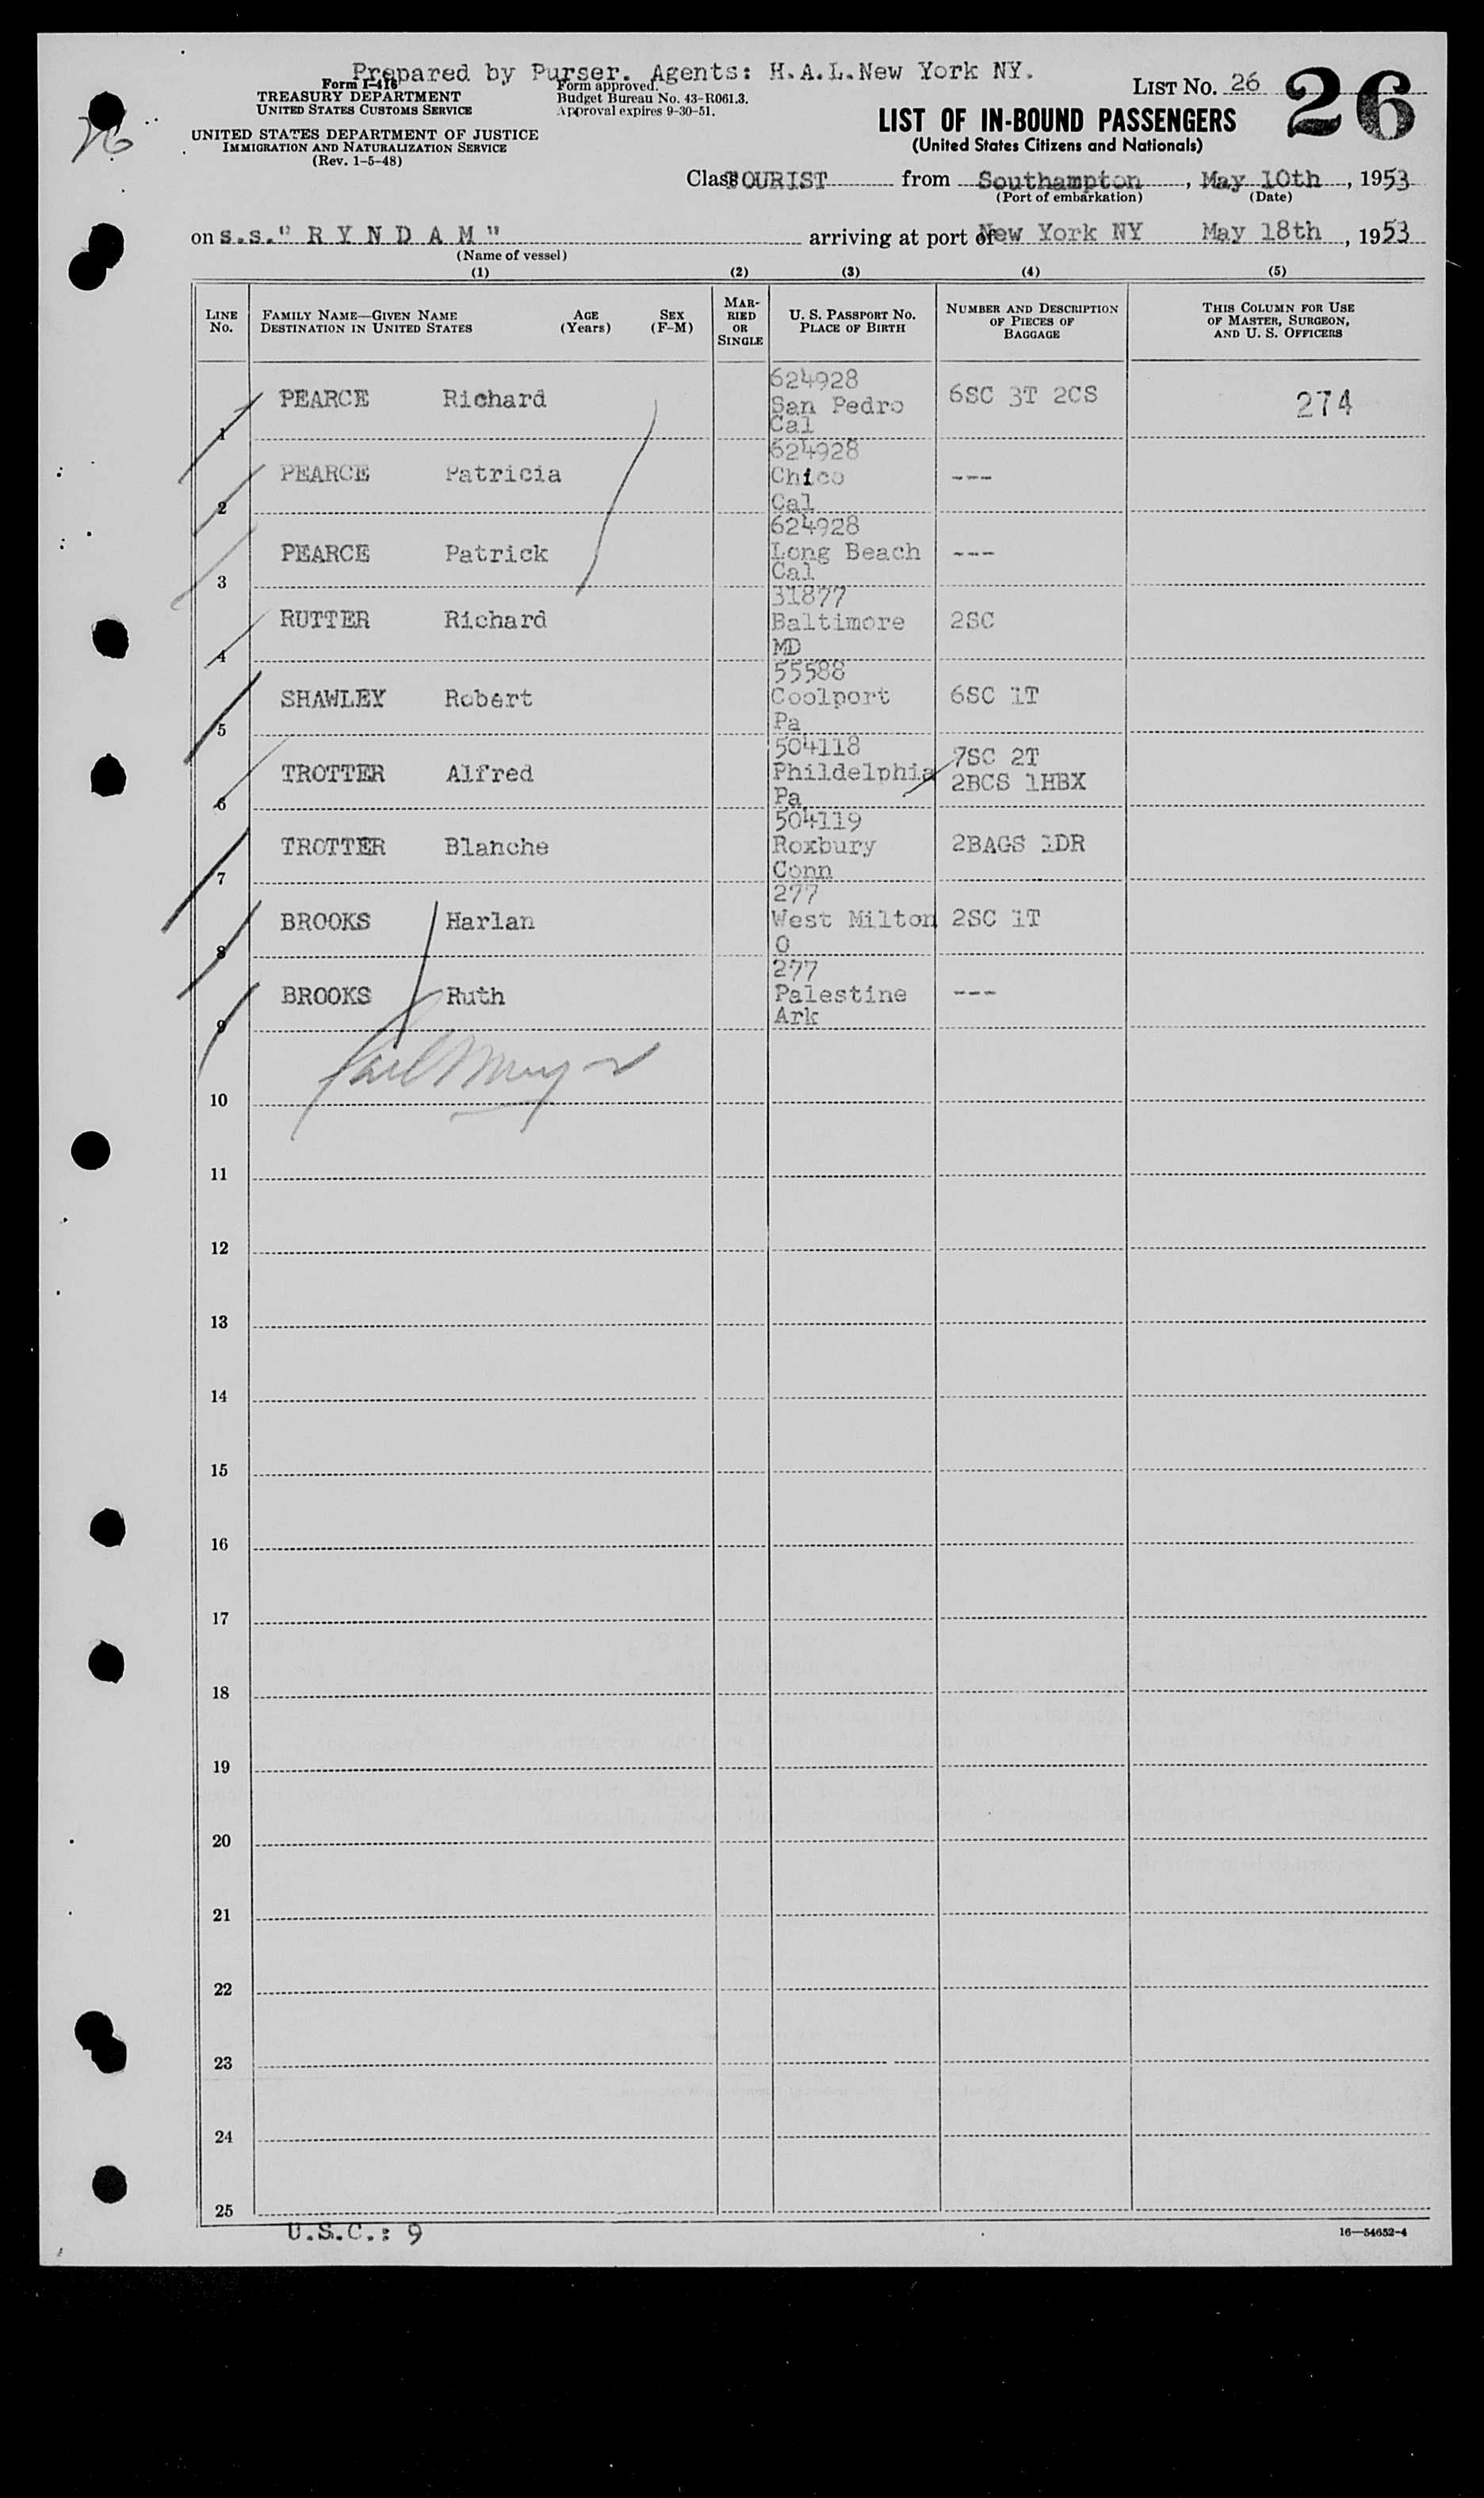 Prepared by Purser. Agents: H.A.L.New York NY.
Form I-418
TREASURY DEPARTMENT
UNITED STATES CUSTOMS SERVICE
Form approved.
Budget Bureau No. 43-R061.3.
Approval expires 9-30-51.
LIST NO. 26
26
26
UNITED STATES DEPARTMENT OF JUSTICE
IMMIGRATION AND NATURALIZATION SERVICE
(Rev. 1-5-48)
LIST OF IN-BOUND PASSENGERS
(United States Citizens and Nationals)
Class TOURIST from Southampton, May 10th, 1953
(Port of embarkation) (Date)
on s.s." R Y N D A M " arriving at port of New York NY May 18th, 1953
(Name of vessel)
(1) (2) (3) (4) (5)
LINE NO.
FAMILY NAME—GIVEN NAME
DESTINATION IN UNITED STATES
AGE (Years)
SEX (F-M)
MARRIED OR SINGLE
U. S. PASSPORT NO.
PLACE OF BIRTH
NUMBER AND DESCRIPTION OF PIECES OF BAGGAGE
THIS COLUMN FOR USE OF MASTER, SURGEON, AND U. S. OFFICERS
1 PEARCE Richard 624928 San Pedro Cal 6SC 3T 2CS 274
2 PEARCE Patricia 624928 Chico Cal ---
3 PEARCE Patrick 624928 Long Beach Cal ---
4 RUTTER Richard 31877 Baltimore MD 2SC
5 SHAWLEY Robert 55588 Coolport Pa 6SC 1T
6 TROTTER Alfred 504118 Phildelphia Pa 7SC 2T 2BCS 1HBX
7 TROTTER Blanche 504119 Roxbury Conn 2BAGS 1DR
8 BROOKS Harlan 277 West Milton O 2SC 1T
9 BROOKS Ruth 277 Palestine Ark ---
10
11
12
13
14
15
16
17
18
19
20
21
22
23
24
25
U.S.C.: 9
16—54652-4